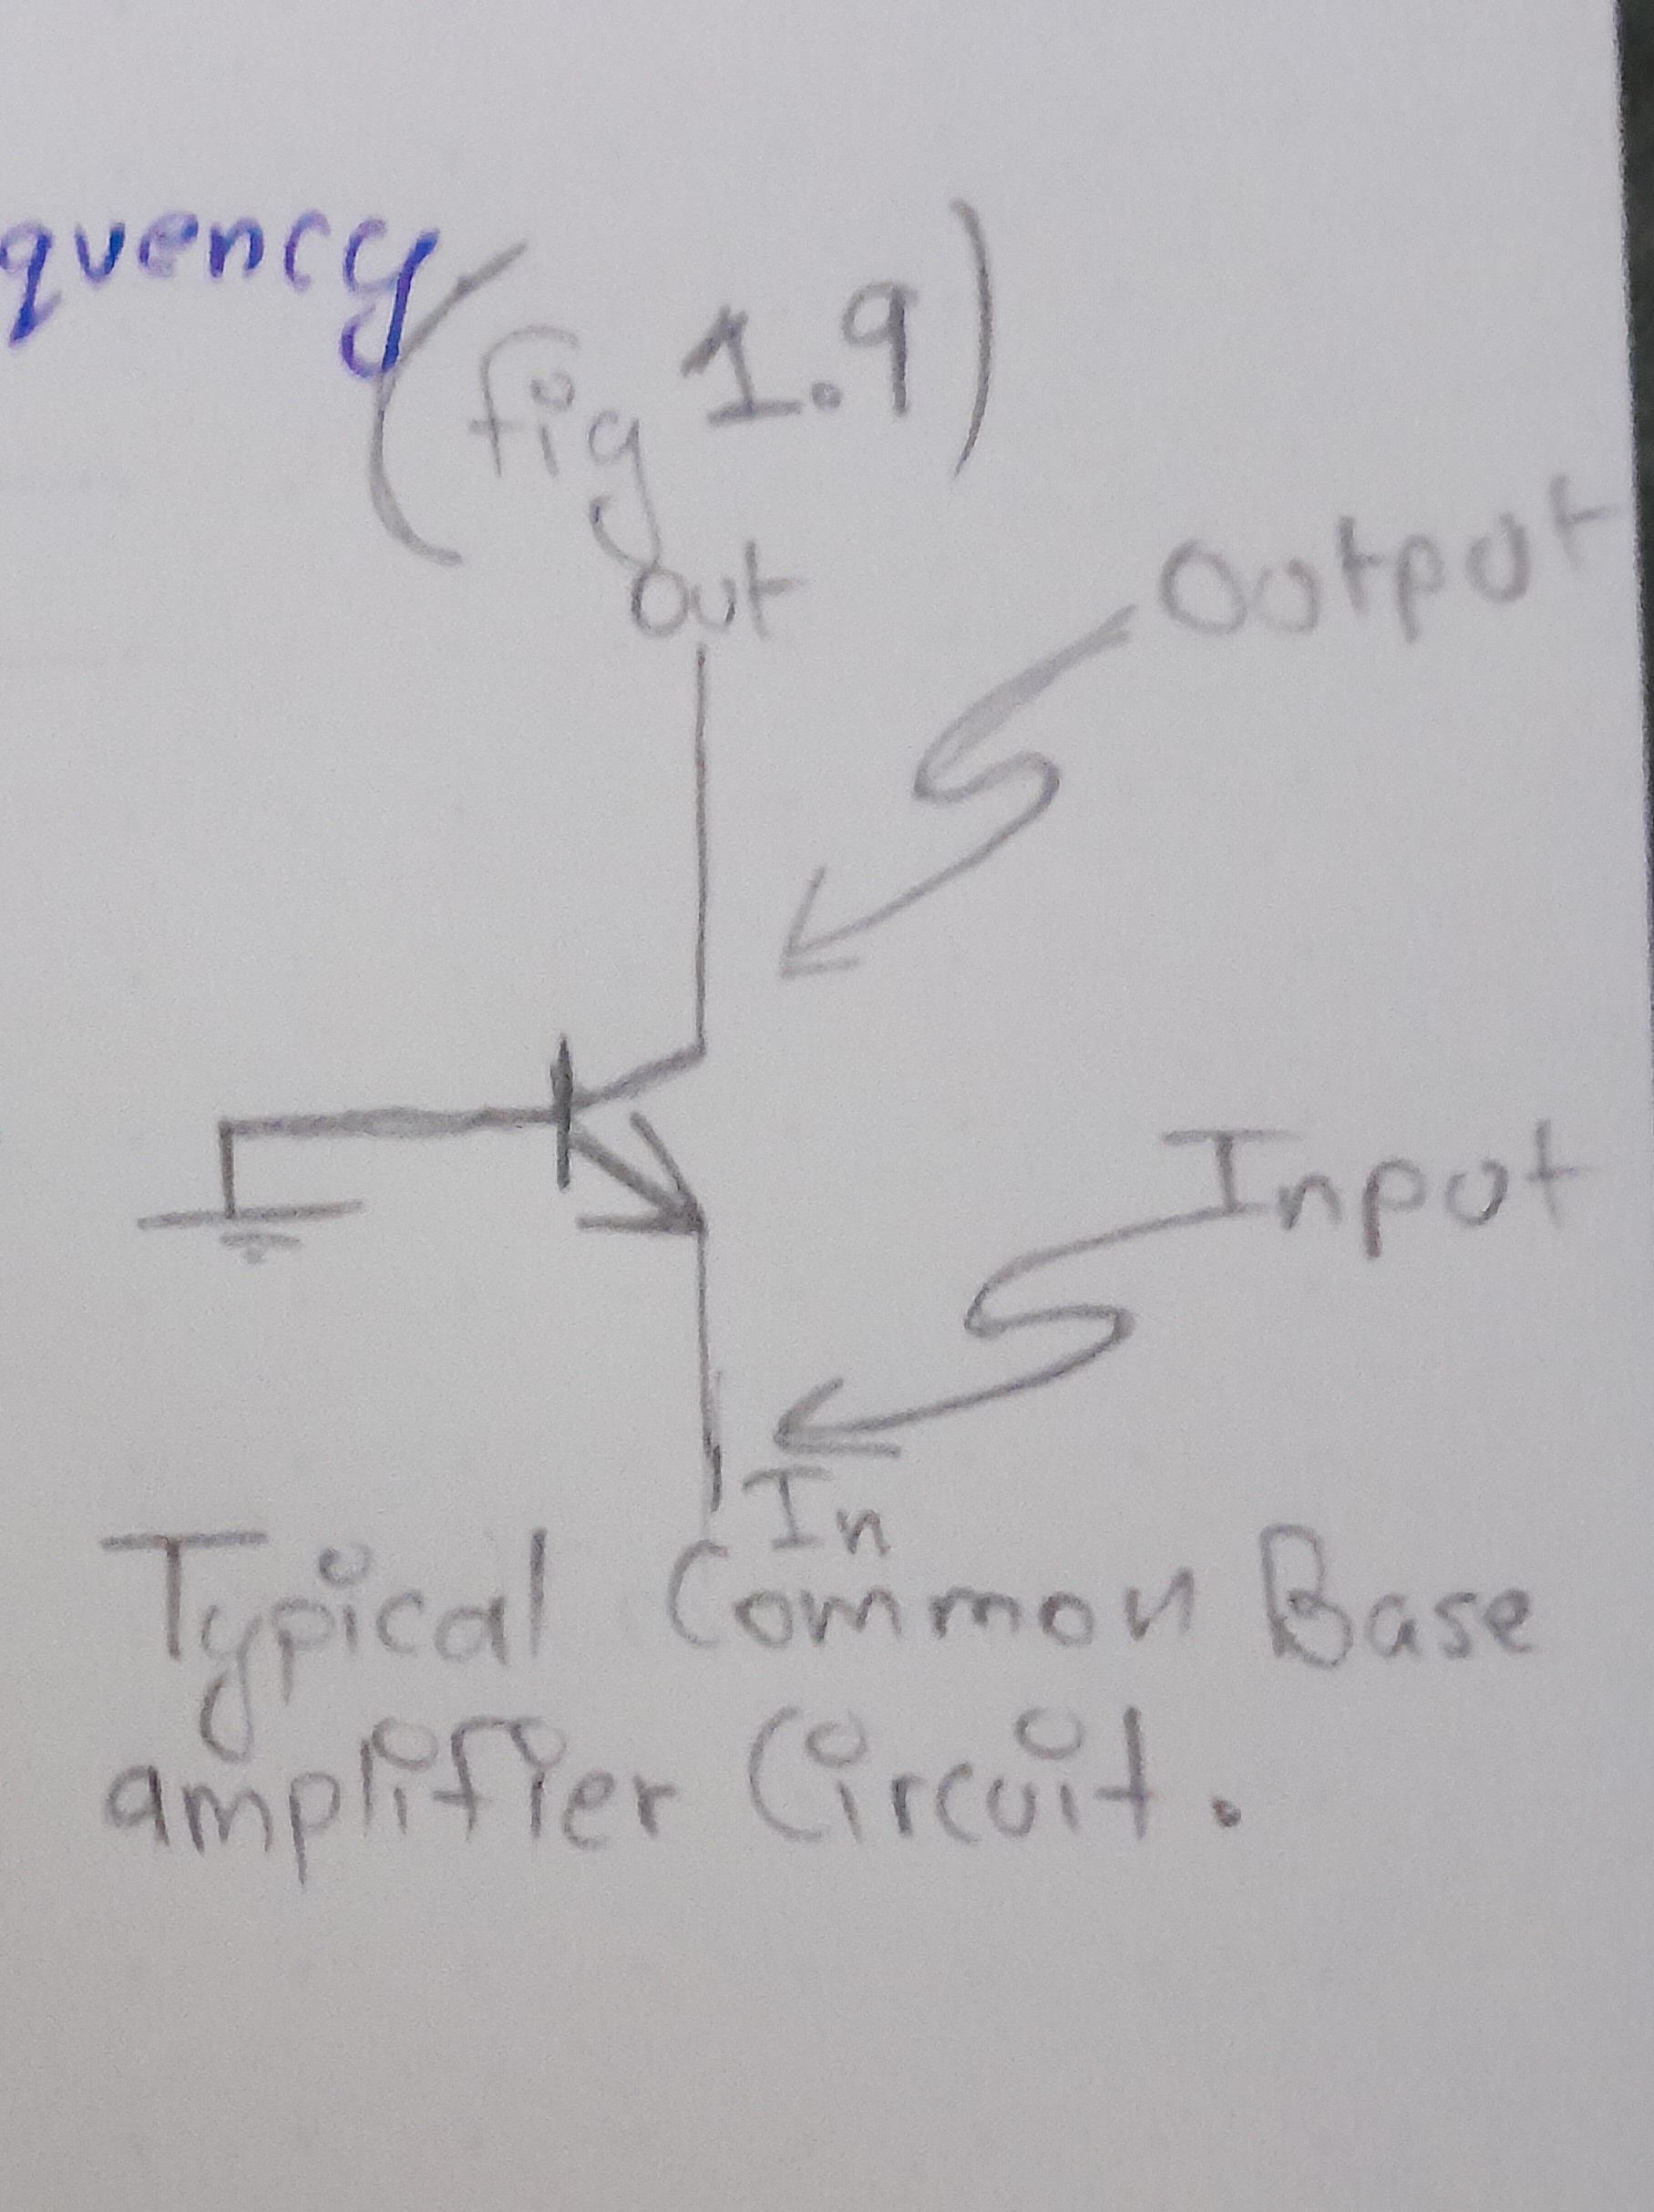 quency
(fig 1.9)
out
Output
Input
In
Typical Common Base
amplifier Circuit.